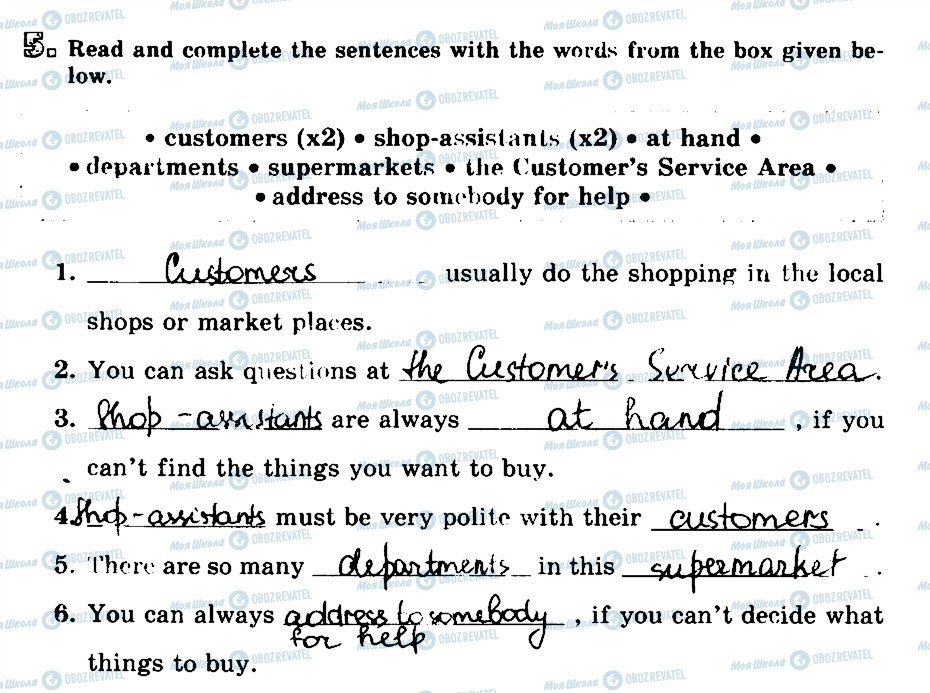 5. Read and complete the sentences with the words from the box given be-
low.
• customers (x2) • shop-assistants (x2) • at hand •
• departments • supermarkets • the Customer's Service Area •
• address to somebody for help •
1. Customers usually do the shopping in the local
shops or market places.
2. You can ask questions at the Customer's Service Area.
3. Shop-assistants are always at hand, if you
can't find the things you want to buy.
4. Shop-assistants must be very polite with their customers.
5. There are so many departments in this supermarket.
6. You can always address to somebody, if you can't decide what
for help
things to buy.
МояШкола OBOZREVATEL